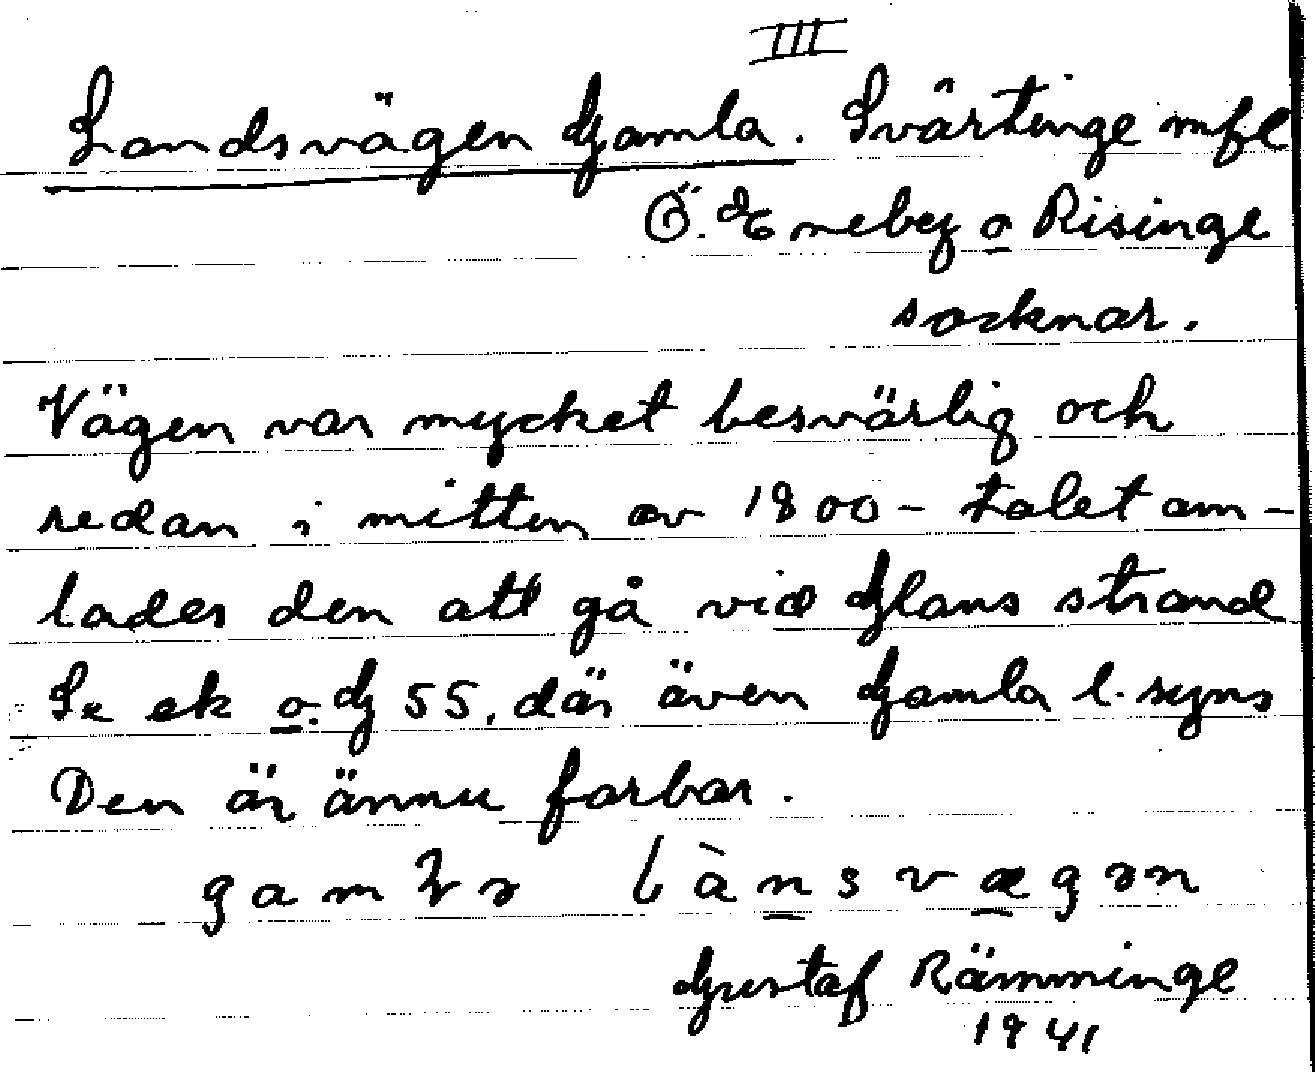 III
Landsvägen Gamla. Svärtinge mfl
Ö. Eneby o Risinge
socknar.
Vägen var mycket besvärlig och
redan i mitten av 1800-talet om-
lades den att gå vid Glans strand
Se ek o. G 55, där även Gamla l. syns
Den är ännu farbar.
gamla lànsvægən
Gustaf Rämminge
1941